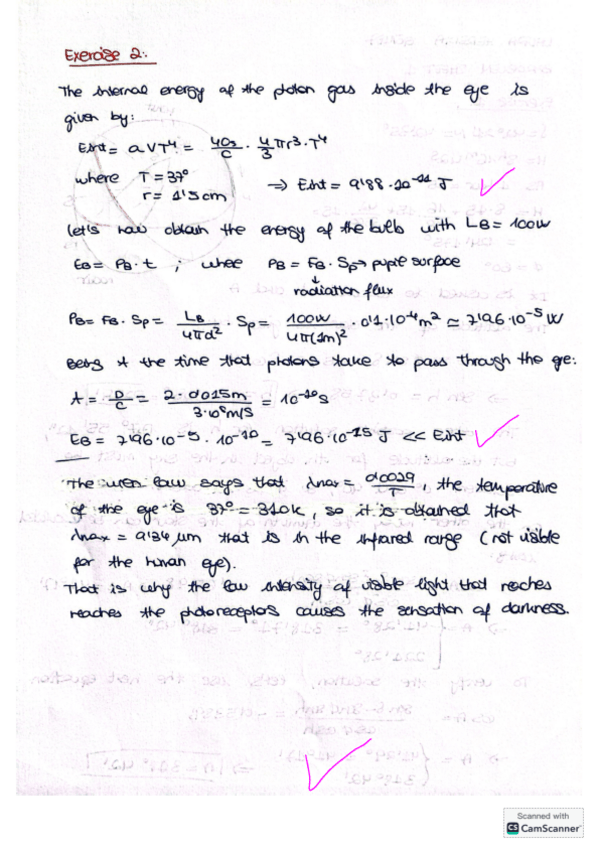 Exercise 2:
The internal energy of the photon gas inside the eye is
given by:
Eint = aVT⁴ = 4σs/C · 4/3 πr³ · T⁴
where T = 37°
r = 1'5 cm
=> Eint = 9'88 · 10⁻¹¹ J
Let's now obtain the energy of the bulb with LB = 100W
EB = PB · t ; where PB = FB · Sp → pupil surface
↓
radiation flux
PB = FB · Sp = LB/4πd² · Sp = 100W/4π(1m)² · 0'1 · 10⁻⁴ m² ≃ 7'96 · 10⁻⁵ W
Being t the time that photons take to pass through the eye:
t = D/C = 2 · 0'015m/3·10⁸m/s = 10⁻¹⁰ s
EB = 7'96 · 10⁻⁵ · 10⁻¹⁰ = 7'96 · 10⁻¹⁵ J << Eint
The Wien law says that λmax = 0'0029/T, the temperature
of the eye is 37° = 310K, so it is obtained that
λmax = 9'34 μm that is in the infrared range (not visible
for the human eye).
That is why the low intensity of visible light that reaches
reaches the photoreceptors causes the sensation of darkness.
Scanned with
CS CamScanner